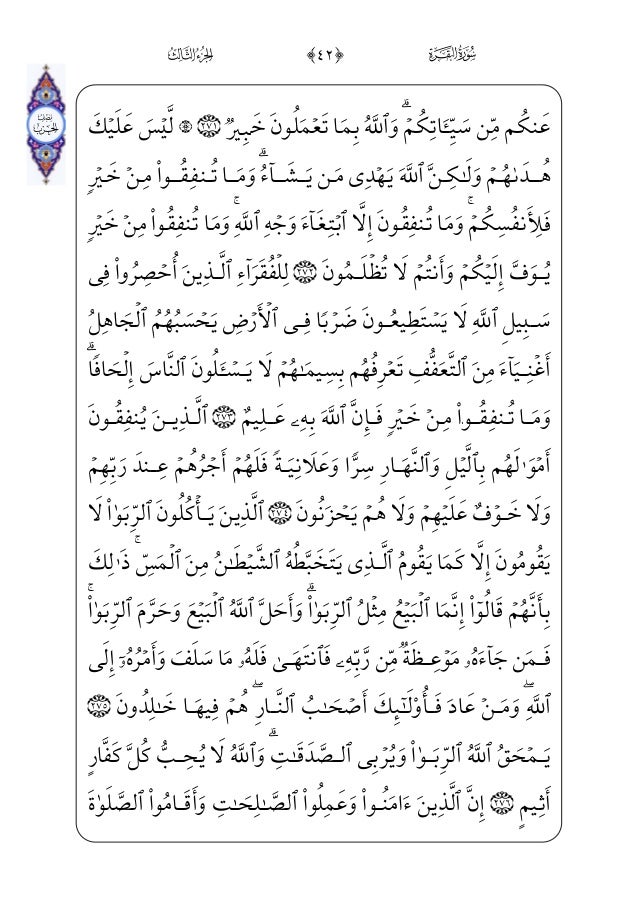 سُورَةُ البَقَرَةِ ﴿٤٢﴾ الجُزءُ الثَّالِثُ
عَنكُم مِّن سَيِّـَٔاتِكُمۡۗ وَٱللَّهُ بِمَا تَعۡمَلُونَ خَبِيرٞ ٢٧١ ۞ لَّيۡسَ عَلَيۡكَ
هُدَىٰهُمۡ وَلَٰكِنَّ ٱللَّهَ يَهۡدِي مَن يَشَآءُۗ وَمَا تُنفِقُواْ مِنۡ خَيۡرٖ
فَلِأَنفُسِكُمۡۚ وَمَا تُنفِقُونَ إِلَّا ٱبۡتِغَآءَ وَجۡهِ ٱللَّهِۚ وَمَا تُنفِقُواْ مِنۡ خَيۡرٖ
يُوَفَّ إِلَيۡكُمۡ وَأَنتُمۡ لَا تُظۡلَمُونَ ٢٧٢ لِلۡفُقَرَآءِ ٱلَّذِينَ أُحۡصِرُواْ فِي
سَبِيلِ ٱللَّهِ لَا يَسۡتَطِيعُونَ ضَرۡبٗا فِي ٱلۡأَرۡضِ يَحۡسَبُهُمُ ٱلۡجَاهِلُ
أَغۡنِيَآءَ مِنَ ٱلتَّعَفُّفِ تَعۡرِفُهُم بِسِيمَٰهُمۡ لَا يَسۡـَٔلُونَ ٱلنَّاسَ إِلۡحَافٗاۗ
وَمَا تُنفِقُواْ مِنۡ خَيۡرٖ فَإِنَّ ٱللَّهَ بِهِۦ عَلِيمٌ ٢٧٣ ٱلَّذِينَ يُنفِقُونَ
أَمۡوَٰلَهُم بِٱلَّيۡلِ وَٱلنَّهَارِ سِرّٗا وَعَلَانِيَةٗ فَلَهُمۡ أَجۡرُهُمۡ عِندَ رَبِّهِمۡ
وَلَا خَوۡفٌ عَلَيۡهِمۡ وَلَا هُمۡ يَحۡزَنُونَ ٢٧٤ ٱلَّذِينَ يَأۡكُلُونَ ٱلرِّبَوٰاْ لَا
يَقُومُونَ إِلَّا كَمَا يَقُومُ ٱلَّذِي يَتَخَبَّطُهُ ٱلشَّيۡطَٰنُ مِنَ ٱلۡمَسِّۚ ذَٰلِكَ
بِأَنَّهُمۡ قَالُوٓاْ إِنَّمَا ٱلۡبَيۡعُ مِثۡلُ ٱلرِّبَوٰاْۗ وَأَحَلَّ ٱللَّهُ ٱلۡبَيۡعَ وَحَرَّمَ ٱلرِّبَوٰاْۚ
فَمَن جَآءَهُۥ مَوۡعِظَةٞ مِّن رَّبِّهِۦ فَٱنتَهَىٰ فَلَهُۥ مَا سَلَفَ وَأَمۡرُهُۥٓ إِلَى
ٱللَّهِۖ وَمَنۡ عَادَ فَأُوْلَٰٓئِكَ أَصۡحَٰبُ ٱلنَّارِۖ هُمۡ فِيهَا خَٰلِدُونَ ٢٧٥
يَمۡحَقُ ٱللَّهُ ٱلرِّبَوٰاْ وَيُرۡبِي ٱلصَّدَقَٰتِۗ وَٱللَّهُ لَا يُحِبُّ كُلَّ كَفَّارٍ
أَثِيمٍ ٢٧٦ إِنَّ ٱلَّذِينَ ءَامَنُواْ وَعَمِلُواْ ٱلصَّٰلِحَٰتِ وَأَقَامُواْ ٱلصَّلَوٰةَ